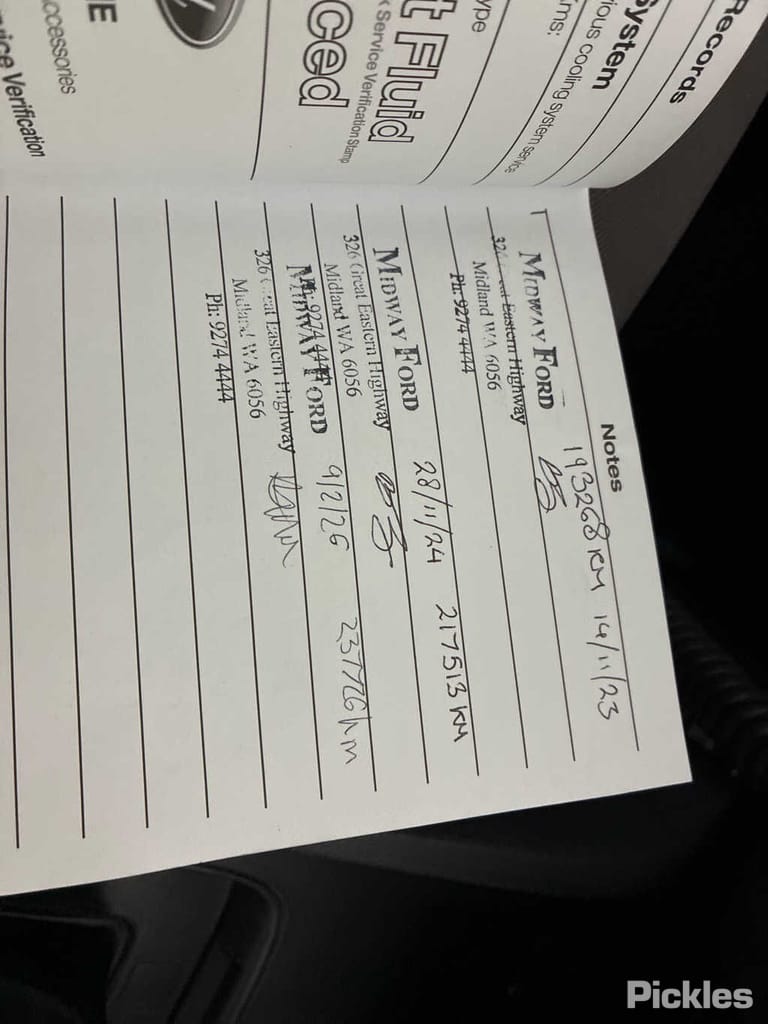 Records
System
ious cooling system service
ms:
ype
t Fluid
Service Verification Stamp
ced
IE
ccessories
vice Verification
Notes
193268 KM 14/11/23
MIDWAY FORD
Great Eastern Highway
Midland WA 6056
Ph: 9274 4444
28/11/24 217513 KM
MIDWAY FORD
326 Great Eastern Highway
Midland WA 6056
Ph: 9274 4444
MIDWAY FORD
326 Great Eastern Highway
Midland WA 6056
Ph: 9274 4444
9/2/26
Pickles